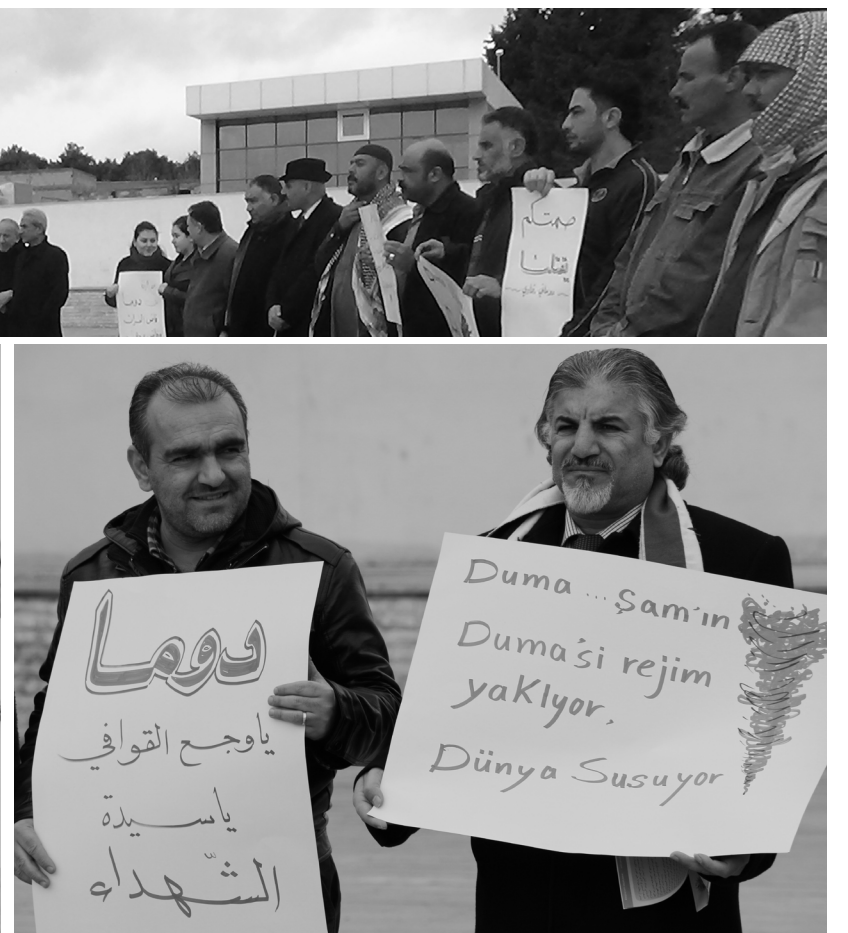 صمتكم
يقتلنا
دوما
دوما
ياوجع القوافي
ياسيدة
الشّهداء
Duma ... Şam'ın
Duma'si rejim
yakıyor,
Dünya Susuyor